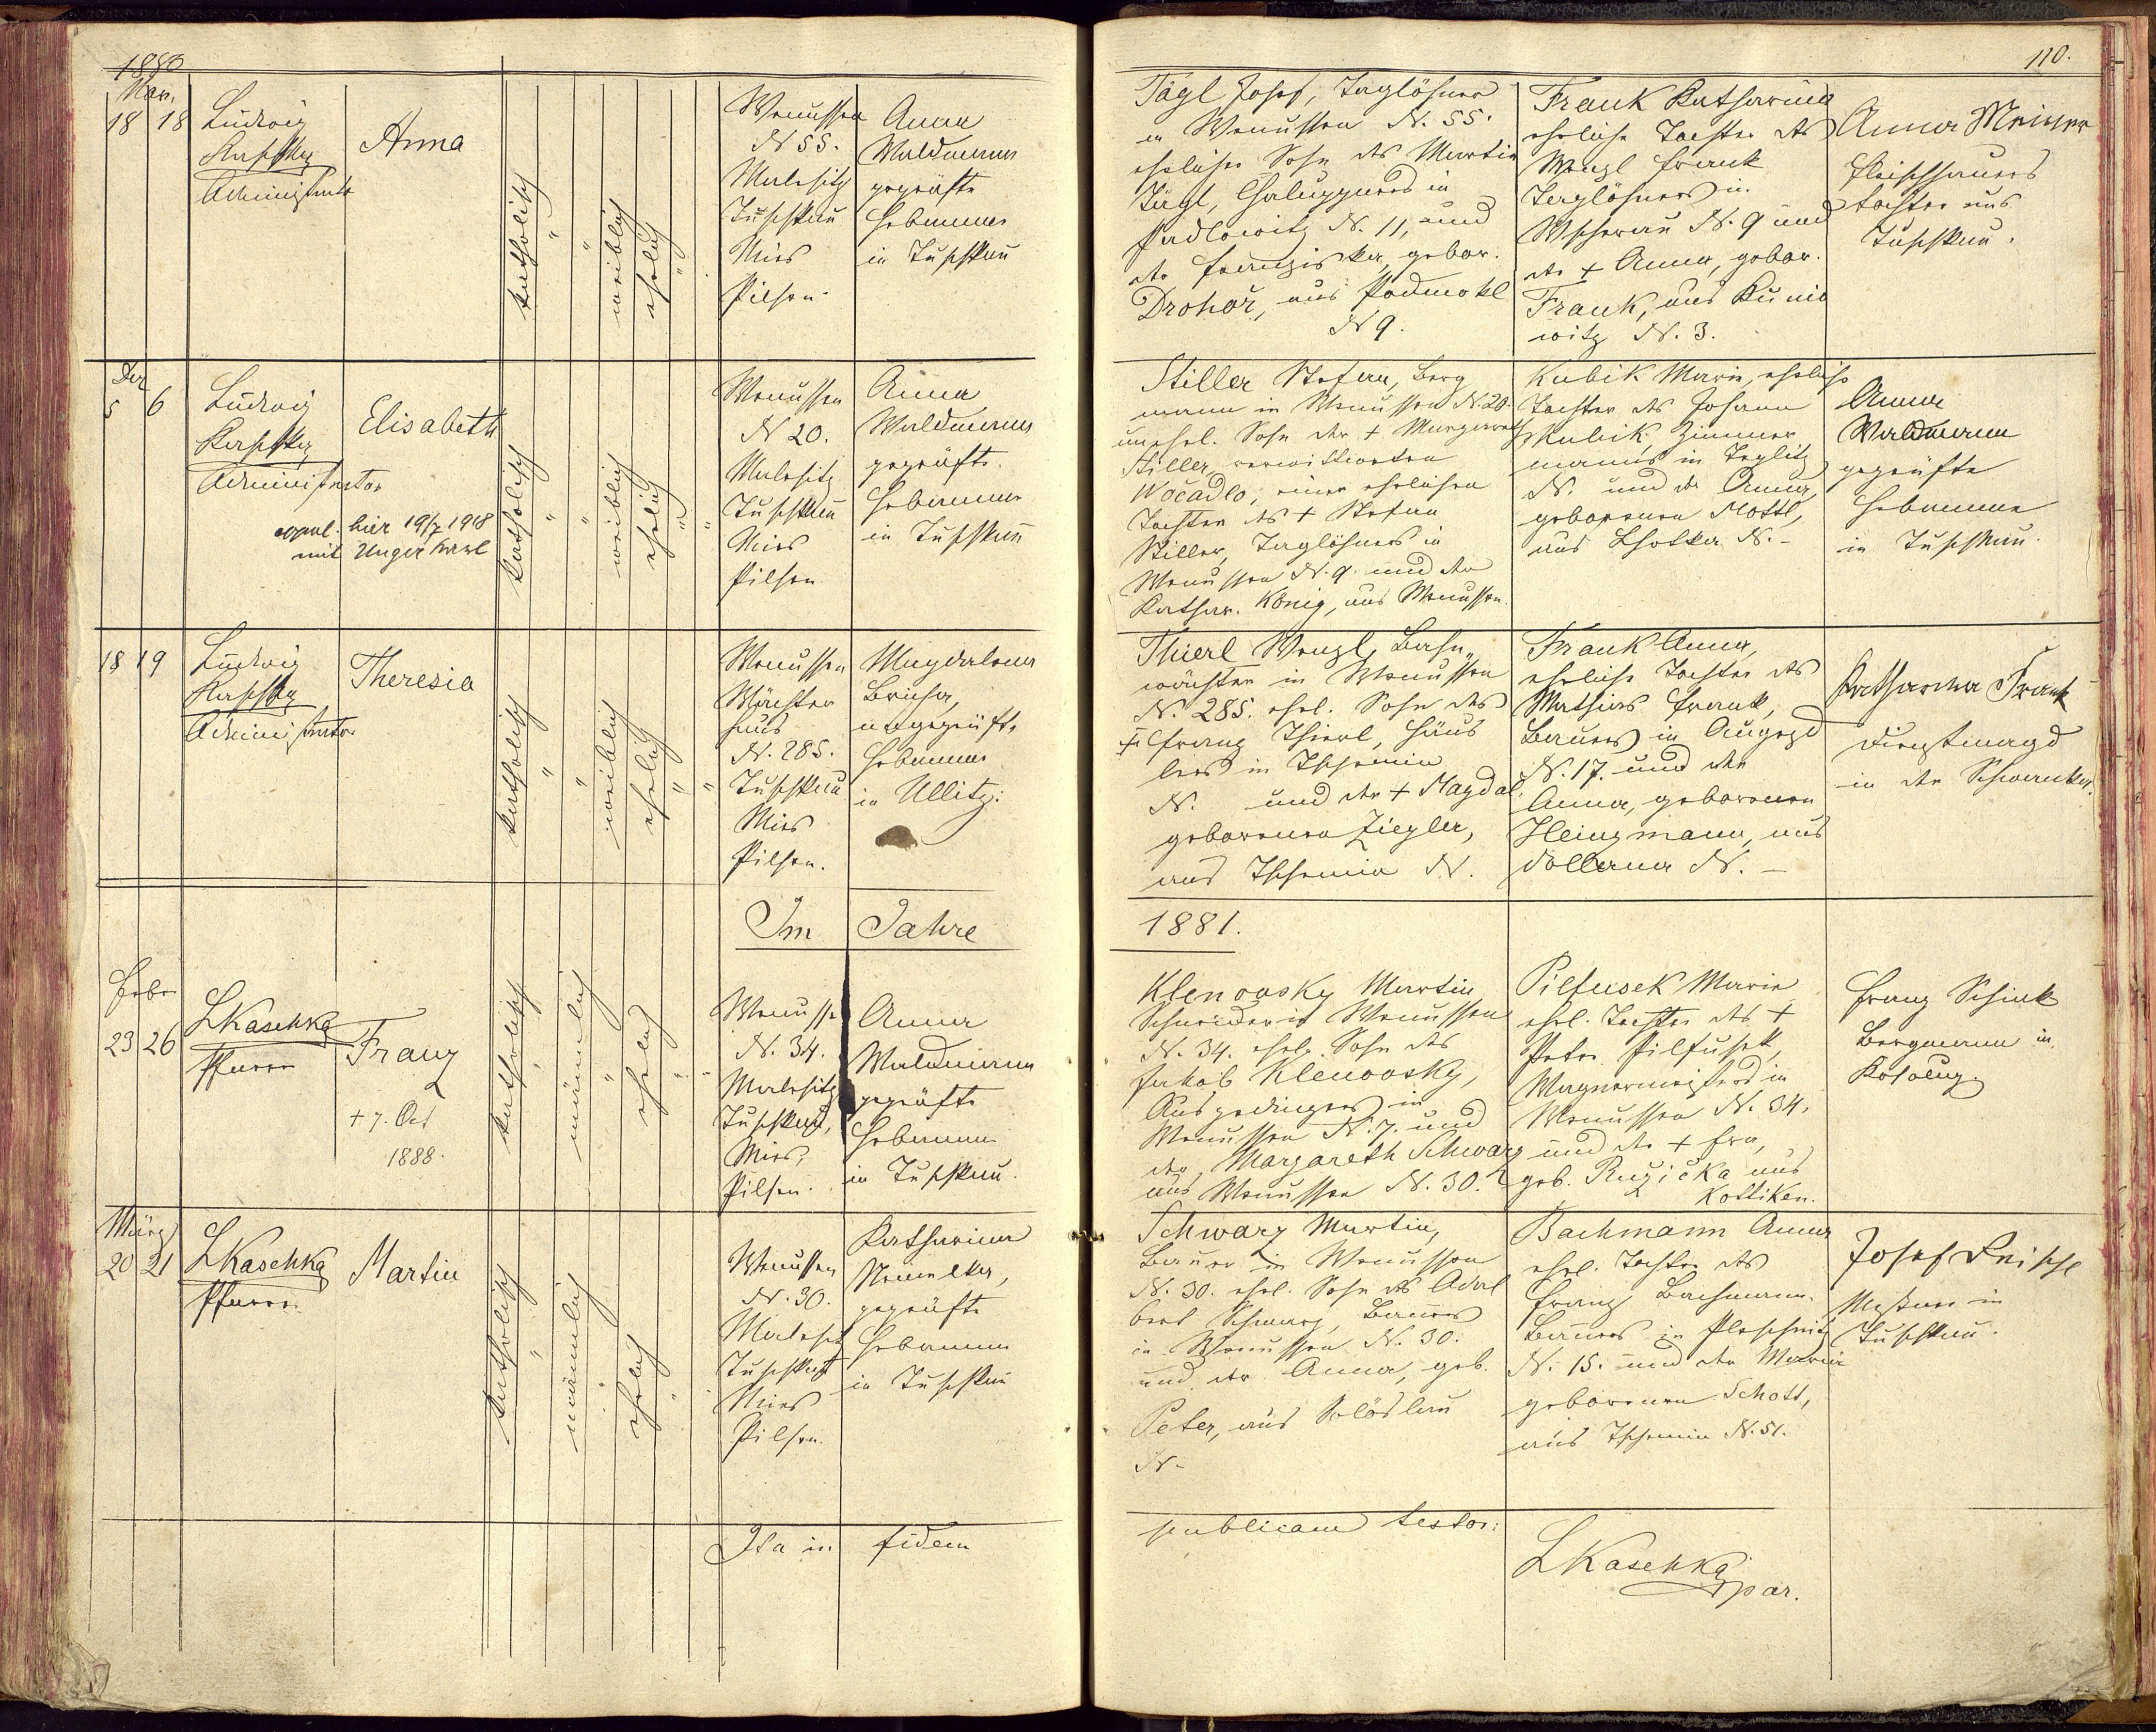 1880
110.
Nov.
18 18
Ludwig
Kaschka
Administrator
Anna
katholisch
"
"
weiblich
ehelich
"
Wenussen
N 55.
Malesitz
Tuschkau
Mies
Pilsen
Anna
Waldmann
geprüfte
Hebamme
in Tuschkau
Tägl Josef, Taglöhner
in Wenussen N. 55.
ehelicher Sohn des Martin
Tägl, Chaluppners in
Padlowitz N. 11, und
der Franziska, gebor.
Drohář, aus Podmokl
N 9.
Frank Katharina
eheliche Tochter des
Wenzl Frank
Taglöhners in
Wscherau N. 9 und
der + Anna, gebor.
Frank, aus Kunio
witz N. 3.
Anna Meixner
Fleischhauers
tochter aus
Tuschkau.
Dez
5 6
Ludwig
Kaschka
Administrator
Elisabeth
copul. hier 19/7 1918
mit Unger Karl
katholisch
"
"
weiblich
ehelich
"
"
Wenussen
N 20.
Malesitz
Tuschkau
Mies
Pilsen
Anna
Waldmann
geprüfte
Hebamme
in Tuschkau
Stiller Stefan, Berg
mann in Wenussen N. 20.
unehel. Sohn der + Margareth
Stiller, verwittweten
Wočadlo, einer ehelichen
Tochter des + Stefan
Stiller, Taglöhners in
Wenussen N. 9. und der
Kathar. König, aus Wenussen.
Kubik Marie, eheliche
Tochter des Johann
Kubik, Zimmer
manns in Teplitz
N. und der Anna,
geborenen Mottl,
aus Lhotka N. -
Anna
Waldmann
geprüfte
Hebamme
in Tuschkau.
18 19
Ludwig
Kaschka
Administrator
Theresia
katholisch
"
"
weiblich
ehelich
"
"
Wenussen
Wächter
haus
N. 285.
Tuschkau
Mies
Pilsen.
Magdalena
Bricha,
ungeprüfte
Hebamme
in Ullitz.
Thierl Wenzl, Bahn
wächter in Wenussen
N. 285. ehel. Sohn des
+ Franz Thierl, Häus
lers in Tschemin
N. und der + Magdal.
geborenen Ziegler,
aus Tschemin N.
Frank Anna,
eheliche Tochter des
Mathias Frank,
Bauers in Augezd
N. 17. und der
Anna, geborenen
Heinzmann, aus
Dollana N. -
Katharina Frank
Dienstmagd
in der Schwanka.
Im Jahre 1881.
Feber
23 26
LKaschka
Pfarrer
Franz
+ 7. Oct
1888.
katholisch
"
männlich
"
ehelich
"
Wenussen
N. 34.
Malesitz
Tuschkau,
Mies,
Pilsen.
Anna
Waldmann
geprüfte
Hebamme
in Tuschkau.
Klenovsky Martin
Schneider in Wenussen
N. 34. ehel. Sohn des
Jakob Klenovsky,
Ausgedingers in
Wenussen N. 7. und
der Margareth Schwarz
aus Wenussen N. 30.
Piltusek Marie
ehel. Tochter des +
Peter Piltusek,
Wagnermeisters in
Wenussen N. 34.
und der + Eva,
geb. Ružička aus
Kottiken.
Franz Schink
Bergmann in
Kosolup.
März
20 21
LKaschka
Pfarrer
Martin
katholisch
"
männlich
"
ehelich
"
Wenussen
N. 30.
Malesitz
Tuschkau
Mies
Pilsen.
Katharina
geprüfte
Hebamme
in Tuschkau
Schwarz Martin,
Bauer in Wenussen
N. 30. ehel. Sohn des Adal
bert Schwarz, Bauers
in Wenussen N. 30.
und der Anna, geb.
Peter, aus
N -
Bachmann Anna
ehel. Tochter des
Franz Bachmann
Bauers in Pleschnitz
N. 15. und der Maria
geborenen Schott,
aus Tschemin N. 51.
Josef
Meßner in
Tuschkau.
Ita in fidem publicam testor:
LKaschka
par.